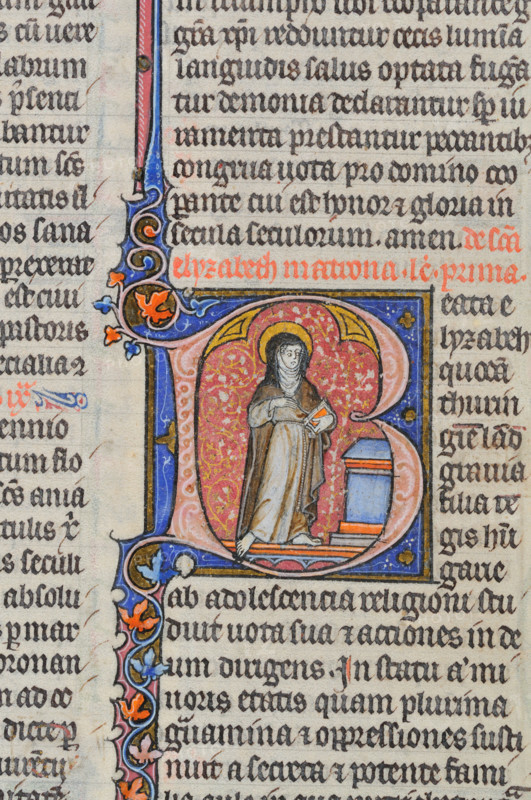 s cū uere
labrum
s p̄senti
bantur
tum scō
uitatis il
os sana
prexerat
est cui
pristoris
ecialia ⁊
ix
ennio
tum flo
scō ania
tulis xp̄
s seculi
absolu
s p̄mar
oronan
m ad co
dicte ꝑ
gr̄a xp̄i redduntur cecis lumīa
languidis salus optata fuga
tur demonia declarantur
ramenta prestantur peccantibꝫ
congrua uota pro domino coo
ꝑante cui est honor ⁊ gloria in
secula seculorum. amen. de scā
elyzabeth matrona. lc̄. prima.
Beata e
lyzabeth
quōdā
thurin
gie lād
grauia
filia re
gis hū
garie
ab adolescencia religioni stu
duit uota sua ⁊ acciones in de
um dirigens. In statu a'mi
noris etatis quam plurima
grauamina ⁊ oppressiones susti
nuit a secreta ⁊ potente fami